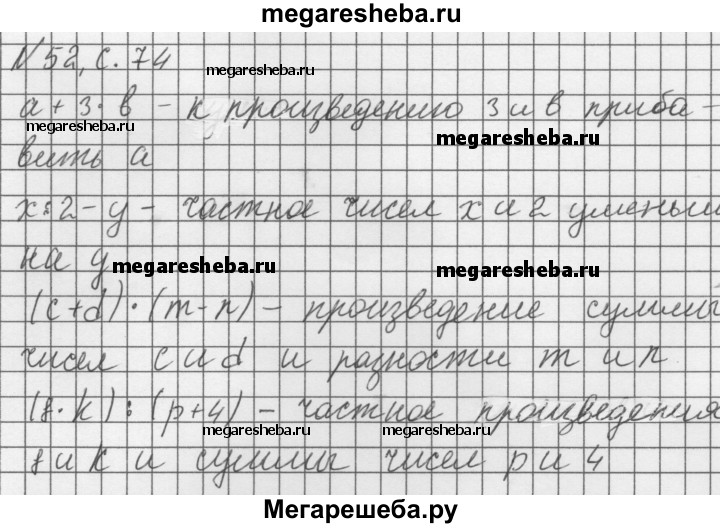 megaresheba.ru
N52, с. 74
megaresheba.ru
а + 3 · в - к произведению 3 и в приба-
megaresheba.ru
megaresheba.ru
вить а
х : 2 - у - частное чисел х и 2 уменьш
на у
megaresheba.ru
megaresheba.ru
(c + d) · (m - n) - произведение суммы
чисел c и d и разности m и n
(f · k) : (p + 4) - частное произведения
megaresheba.ru
megaresheba.ru
f и k и суммы чисел p и 4
Мегарешеба.ру